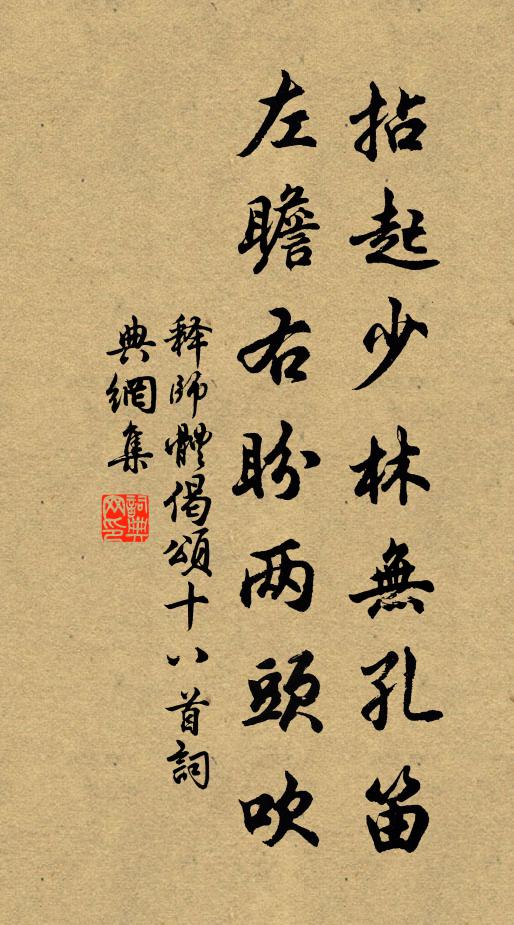 拈起少林無孔笛
左瞻右盼两頭吹
释師體偈頌十八首詞
典網集
詞典网印